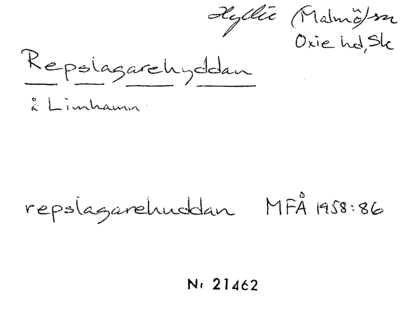 Hyllie (Malmö) sn
Oxie hd, Sk
Repslagarehyddan
å Limhamn
repslagarehuddan MFÅ 1958:86
Nr 21462